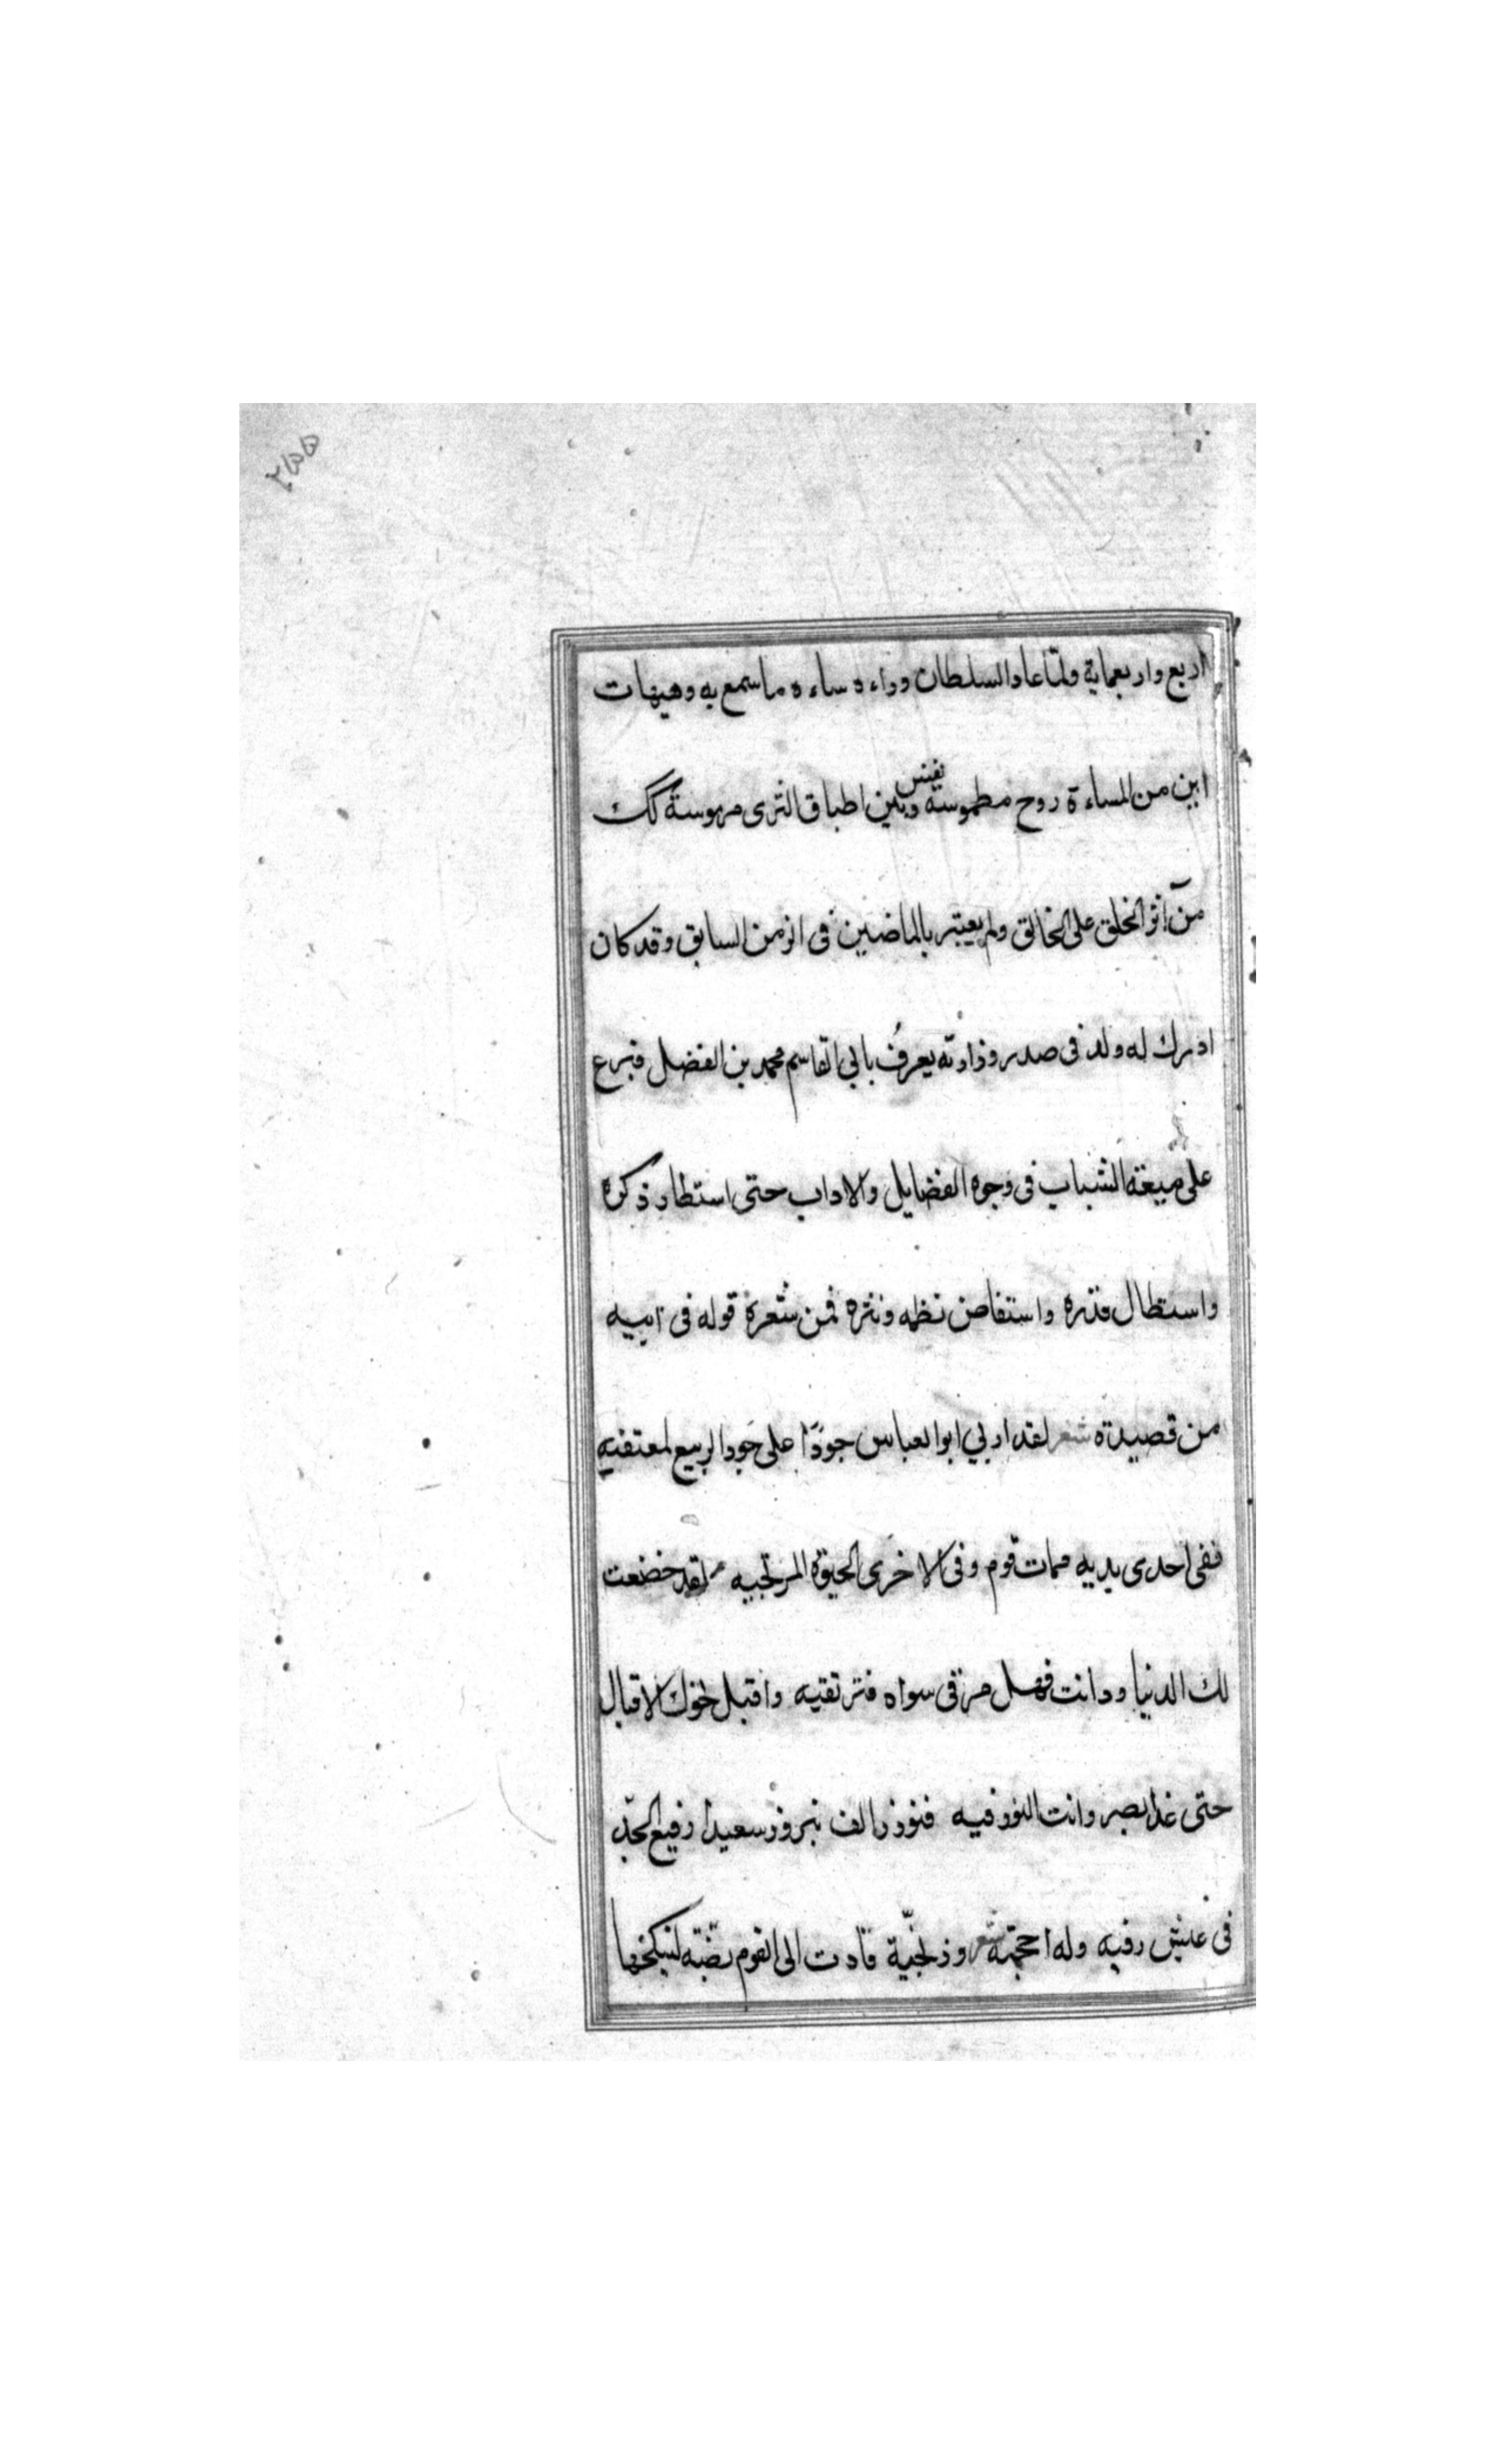 ٢٥٥
اربع واربعماية ولمّا عاد السلطان وراءه ساءه ما سمع به وهيهات
اين من المساءة روح مطموسة نفس وبين اطباق الثرى مرموسة كك
من آثر الخلق على الخالق ولم يعتبر بالماضين فى الزمن السابق وقد كان
ادرك له ولد فى صدر وزارته يعرف بابي القاسم محمد بن الفضل فبرع
على ميعة الشباب فى وجوه الفضايل والاداب حتى استطار ذكره
واستطال قدره واستفاض نظمه ونثره فمن شعره قوله فى ابيه
من قصيدة شعر لقد اربي ابو العباس جودًا على جود الربيع لمعتفيه
ففى احدى يديه ممات قوم وفى الاخرى الحيوة المرتجيه لقد خضعت
لك الدنيا ودانت فهل مرقى سواه فترتقيه واقبل نحوك الاقبال
حتى غدا بصر وانت النور فيه فنوزر الف نيروز سعيدا رفيع الجدّ
فى عيش رفيه وله احجية شعر وزنجيّة قادت الى القوم بضّة لينكحها